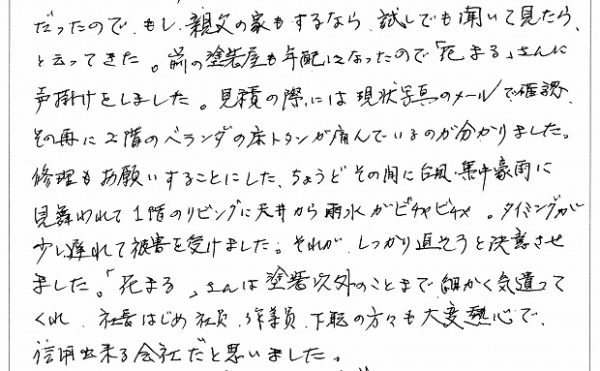 だったので、もし、親父の家もするなら、試しでも聞いて見たら、
と云ってきた。前の塗装屋も年配になったので「花まる」さんに
声掛けをしました。見積の際には現状写真のメールで確認、
その再に2階のベランダの床トタンが痛んでいるのが分かりました。
修理もお願いすることにした、ちょうどその間に台風・集中豪雨に
見舞われて1階のリビングに天井から雨水がピチャピチャ。タイミングが
少し遅れて被害を受けました。それが、しっかり直そうと決意させ
ました。「花まる」さんは塗装以外のことまで細かく気遣って
くれ、社長はじめ社員、作業員、下職の方々も大変熱心で、
信用出来る会社だと思いました。